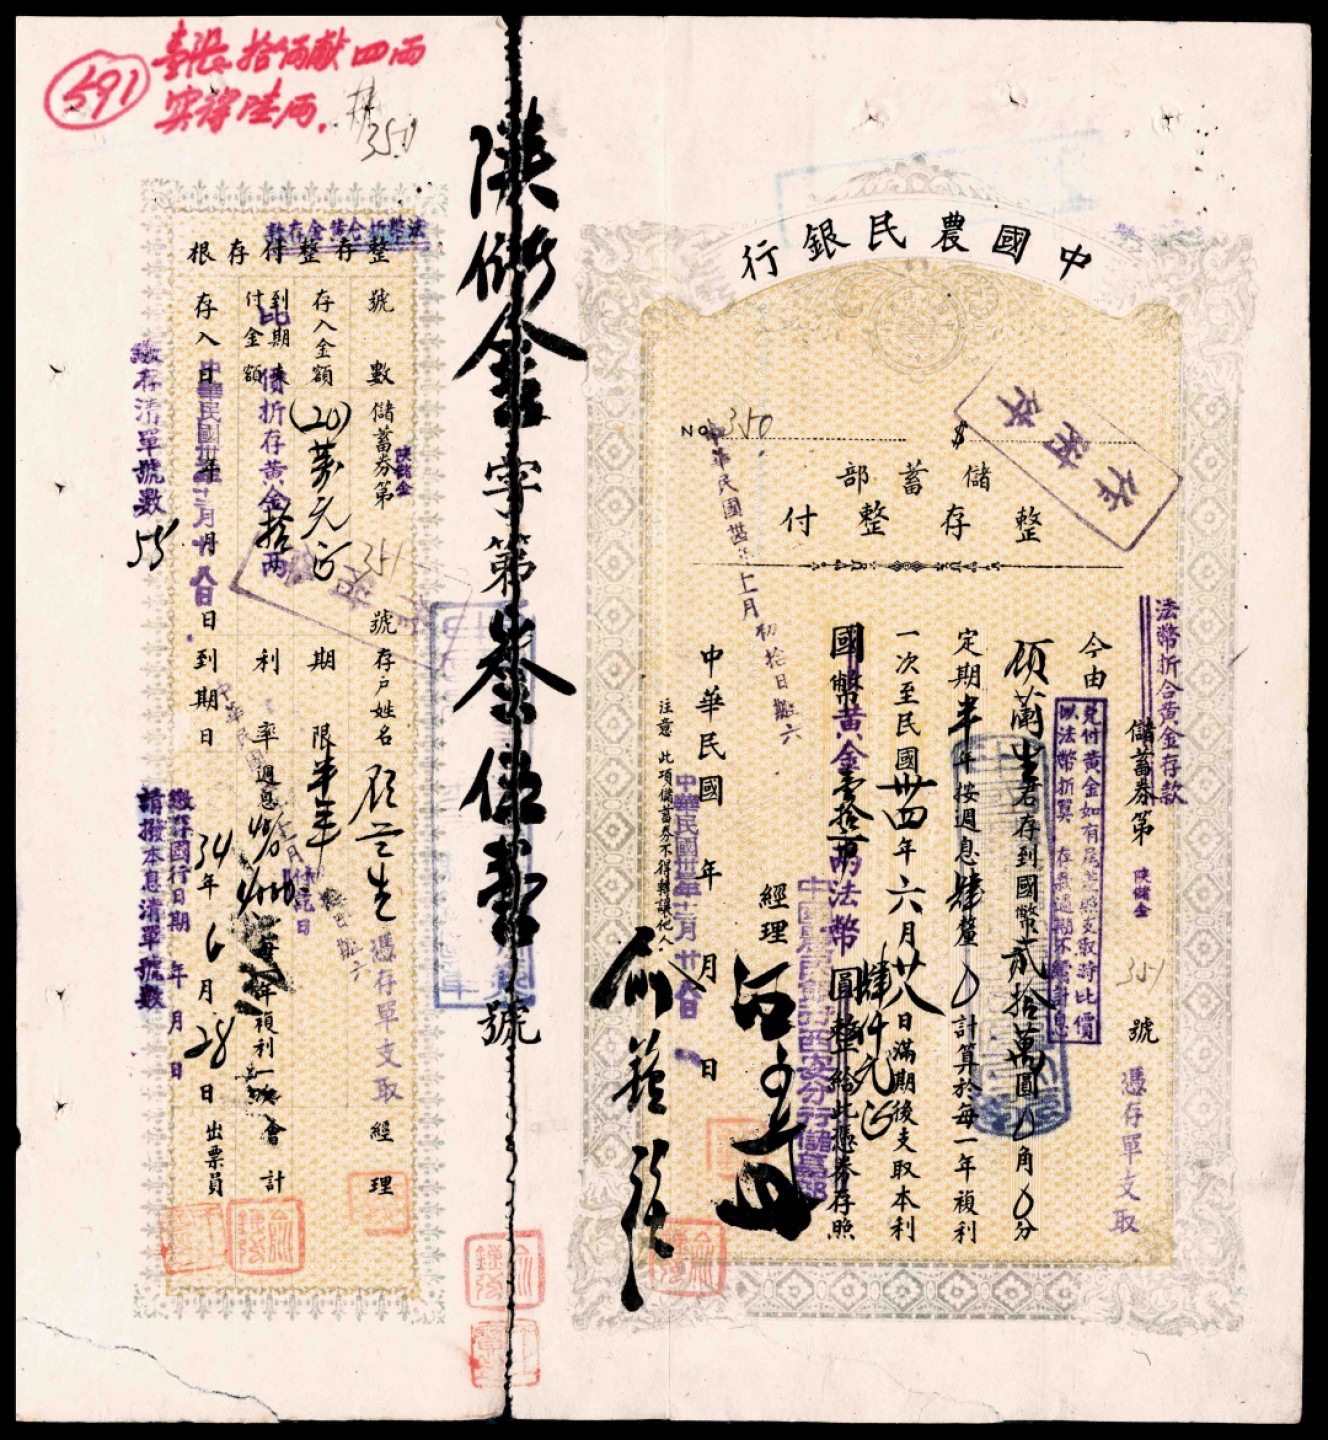 中國農民銀行
No. 350
$
儲蓄部
整存整付
存附本
法幣折合黃金存款
儲蓄券第 陝儲金 351 號
憑存單支取
兌付黃金如有尾差照支取時比價
以法幣折算 存款逾期不需計息
今由 顧蘭生君存到國幣貳拾萬圓0角0分
定期半年按週息肆釐0計算於每一年複利
一次至民國卅四年六月廿八日滿期後支取本利
國幣黃金壹拾兩法幣肆仟元正圓整給此憑券存照
中國農民銀行西安分行儲蓄部
經理
中華民國 年 月 日
中華民國卅三年十二月廿八日
注意 此項儲蓄券不得轉讓他人
陝儲金字第叁伍壹號
591
壹張拾兩獻四兩
實得陸兩.
350
法幣折合黃金存款
整存整付存根
號數 儲蓄券第 陝儲金 351 號 存戶姓名 顧蘭生
憑存單支取
經理
存入金額 (20)萬元正 期限半年
到期付金額 此比價折存黃金拾兩 利率 週息 每 年複利一次 會計
存入日 中華民國卅三年十二月廿八日 到期日 34年6月28日 出票員
繳存清單號數 55
繳存國行日期 年 月 日
請撥本息清單號數